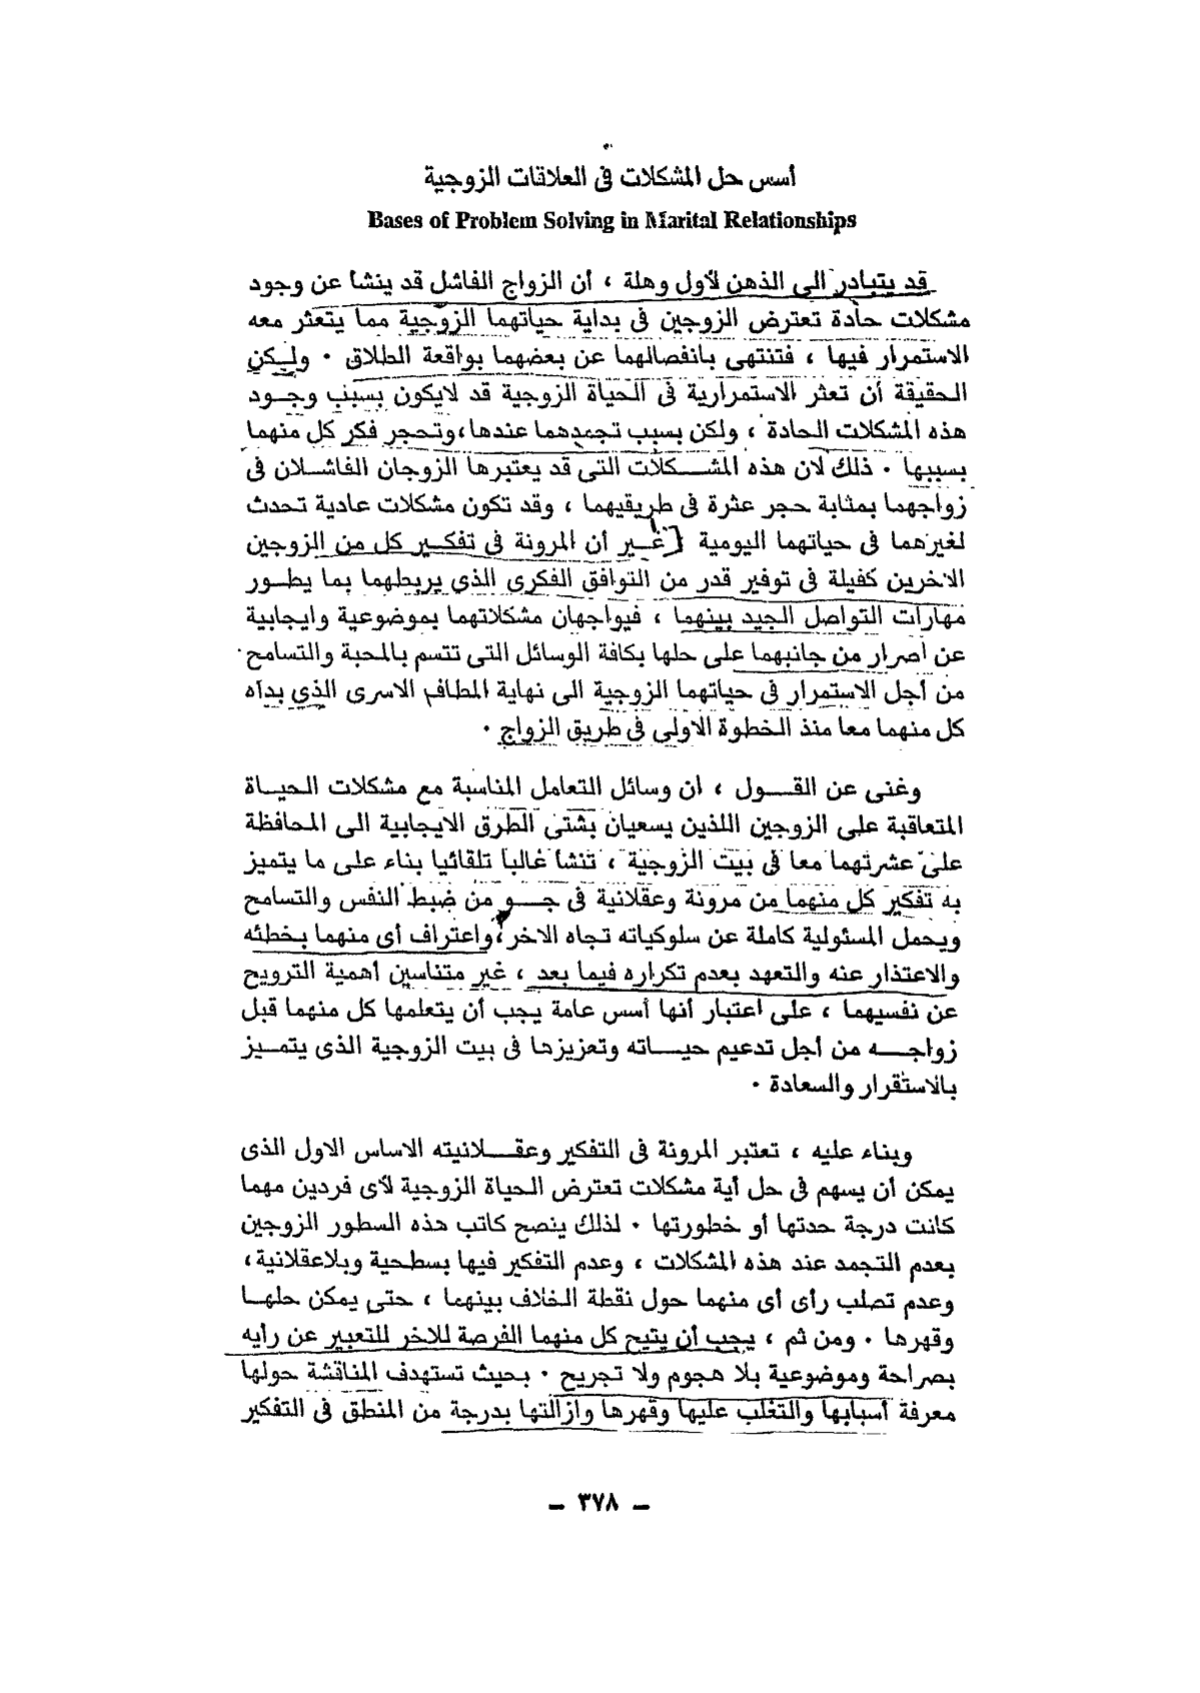 أسس حل المشكلات فى العلاقات الزوجية
Bases of Problem Solving in Marital Relationships
قد يتبادر الى الذهن لأول وهلة ، أن الزواج الفاشل قد ينشا عن وجود
مشكلات حادة تعترض الزوجين فى بداية حياتهما الزوجية مما يتعثر معه
الاستمرار فيها ، فتنتهى بانفصالهما عن بعضهما بواقعة الطلاق ٠ ولـكن
الحقيقة أن تعثر الاستمرارية فى الحياة الزوجية قد لايكون بسبب وجـود
هذه المشكلات الحادة ، ولكن بسبب تجمدهما عندها، وتحجر فكر كل منهما
بسببها ٠ ذلك لان هذه المشـــكلات التى قد يعتبرها الزوجان الفاشـلان فى
زواجهما بمثابة حجر عثرة فى طريقيهما ، وقد تكون مشكلات عادية تحدث
لغيرهما فى حياتهما اليومية [غـير أن المرونة فى تفكـير كل من الزوجين
الاخرين كفيلة فى توفير قدر من التوافق الفكرى الذى يربطهما بما يطـور
مهارات التواصل الجيد بينهما ، فيواجهان مشكلاتهما بموضوعية وايجابية
عن اصرار من جانبهما على حلها بكافة الوسائل التى تتسم بالمحبة والتسامح
من أجل الاستمرار فى حياتهما الزوجية الى نهاية المطاف الاسرى الذي بدأه
كل منهما معا منذ الخطوة الاولى فى طريق الزواج ٠
وغنى عن القـــول ، ان وسائل التعامل المناسبة مع مشكلات الحيـاة
المتعاقبة على الزوجين اللذين يسعيان بشتى الطرق الايجابية الى المحافظة
على عشرتهما معا فى بيت الزوجية ، تنشا غالبا تلقائيا بناء على ما يتميز
به تفكير كل منهما من مرونة وعقلانية فى جـــو من ضبط النفس والتسامح
ويحمل المسئولية كاملة عن سلوكياته تجاه الاخر، واعتراف أى منهما بخطئه
والاعتذار عنه والتعهد بعدم تكراره فيما بعد ، غير متناسين أهمية الترويح
عن نفسيهما ، على اعتبار أنها أسس عامة يجب أن يتعلمها كل منهما قبل
زواجـــه من أجل تدعيم حيـــاته وتعزيزها فى بيت الزوجية الذى يتمـيز
بالاستقرار والسعادة ٠
وبناء عليه ، تعتبر المرونة فى التفكير وعقـــلانيته الاساس الاول الذى
يمكن أن يسهم فى حل أية مشكلات تعترض الحياة الزوجية لأى فردين مهما
كانت درجة حدتها أو خطورتها ٠ لذلك ينصح كاتب هذه السطور الزوجين
بعدم التجمد عند هذه المشكلات ، وعدم التفكير فيها بسطحية وبلاعقلانية ،
وعدم تصلب رأى أى منهما حول نقطة الخلاف بينهما ، حتى يمكن حلهـا
وقهرها ٠ ومن ثم ، يجب أن يتيح كل منهما الفرصة للاخر للتعبير عن رأيه
بصراحة وموضوعية بلا هجوم ولا تجريح ٠ بحيث تستهدف المناقشة حولها
معرفة أسبابها والتغلب عليها وقهرها وازالتها بدرجة من المنطق فى التفكير
— ٣٧٨ —